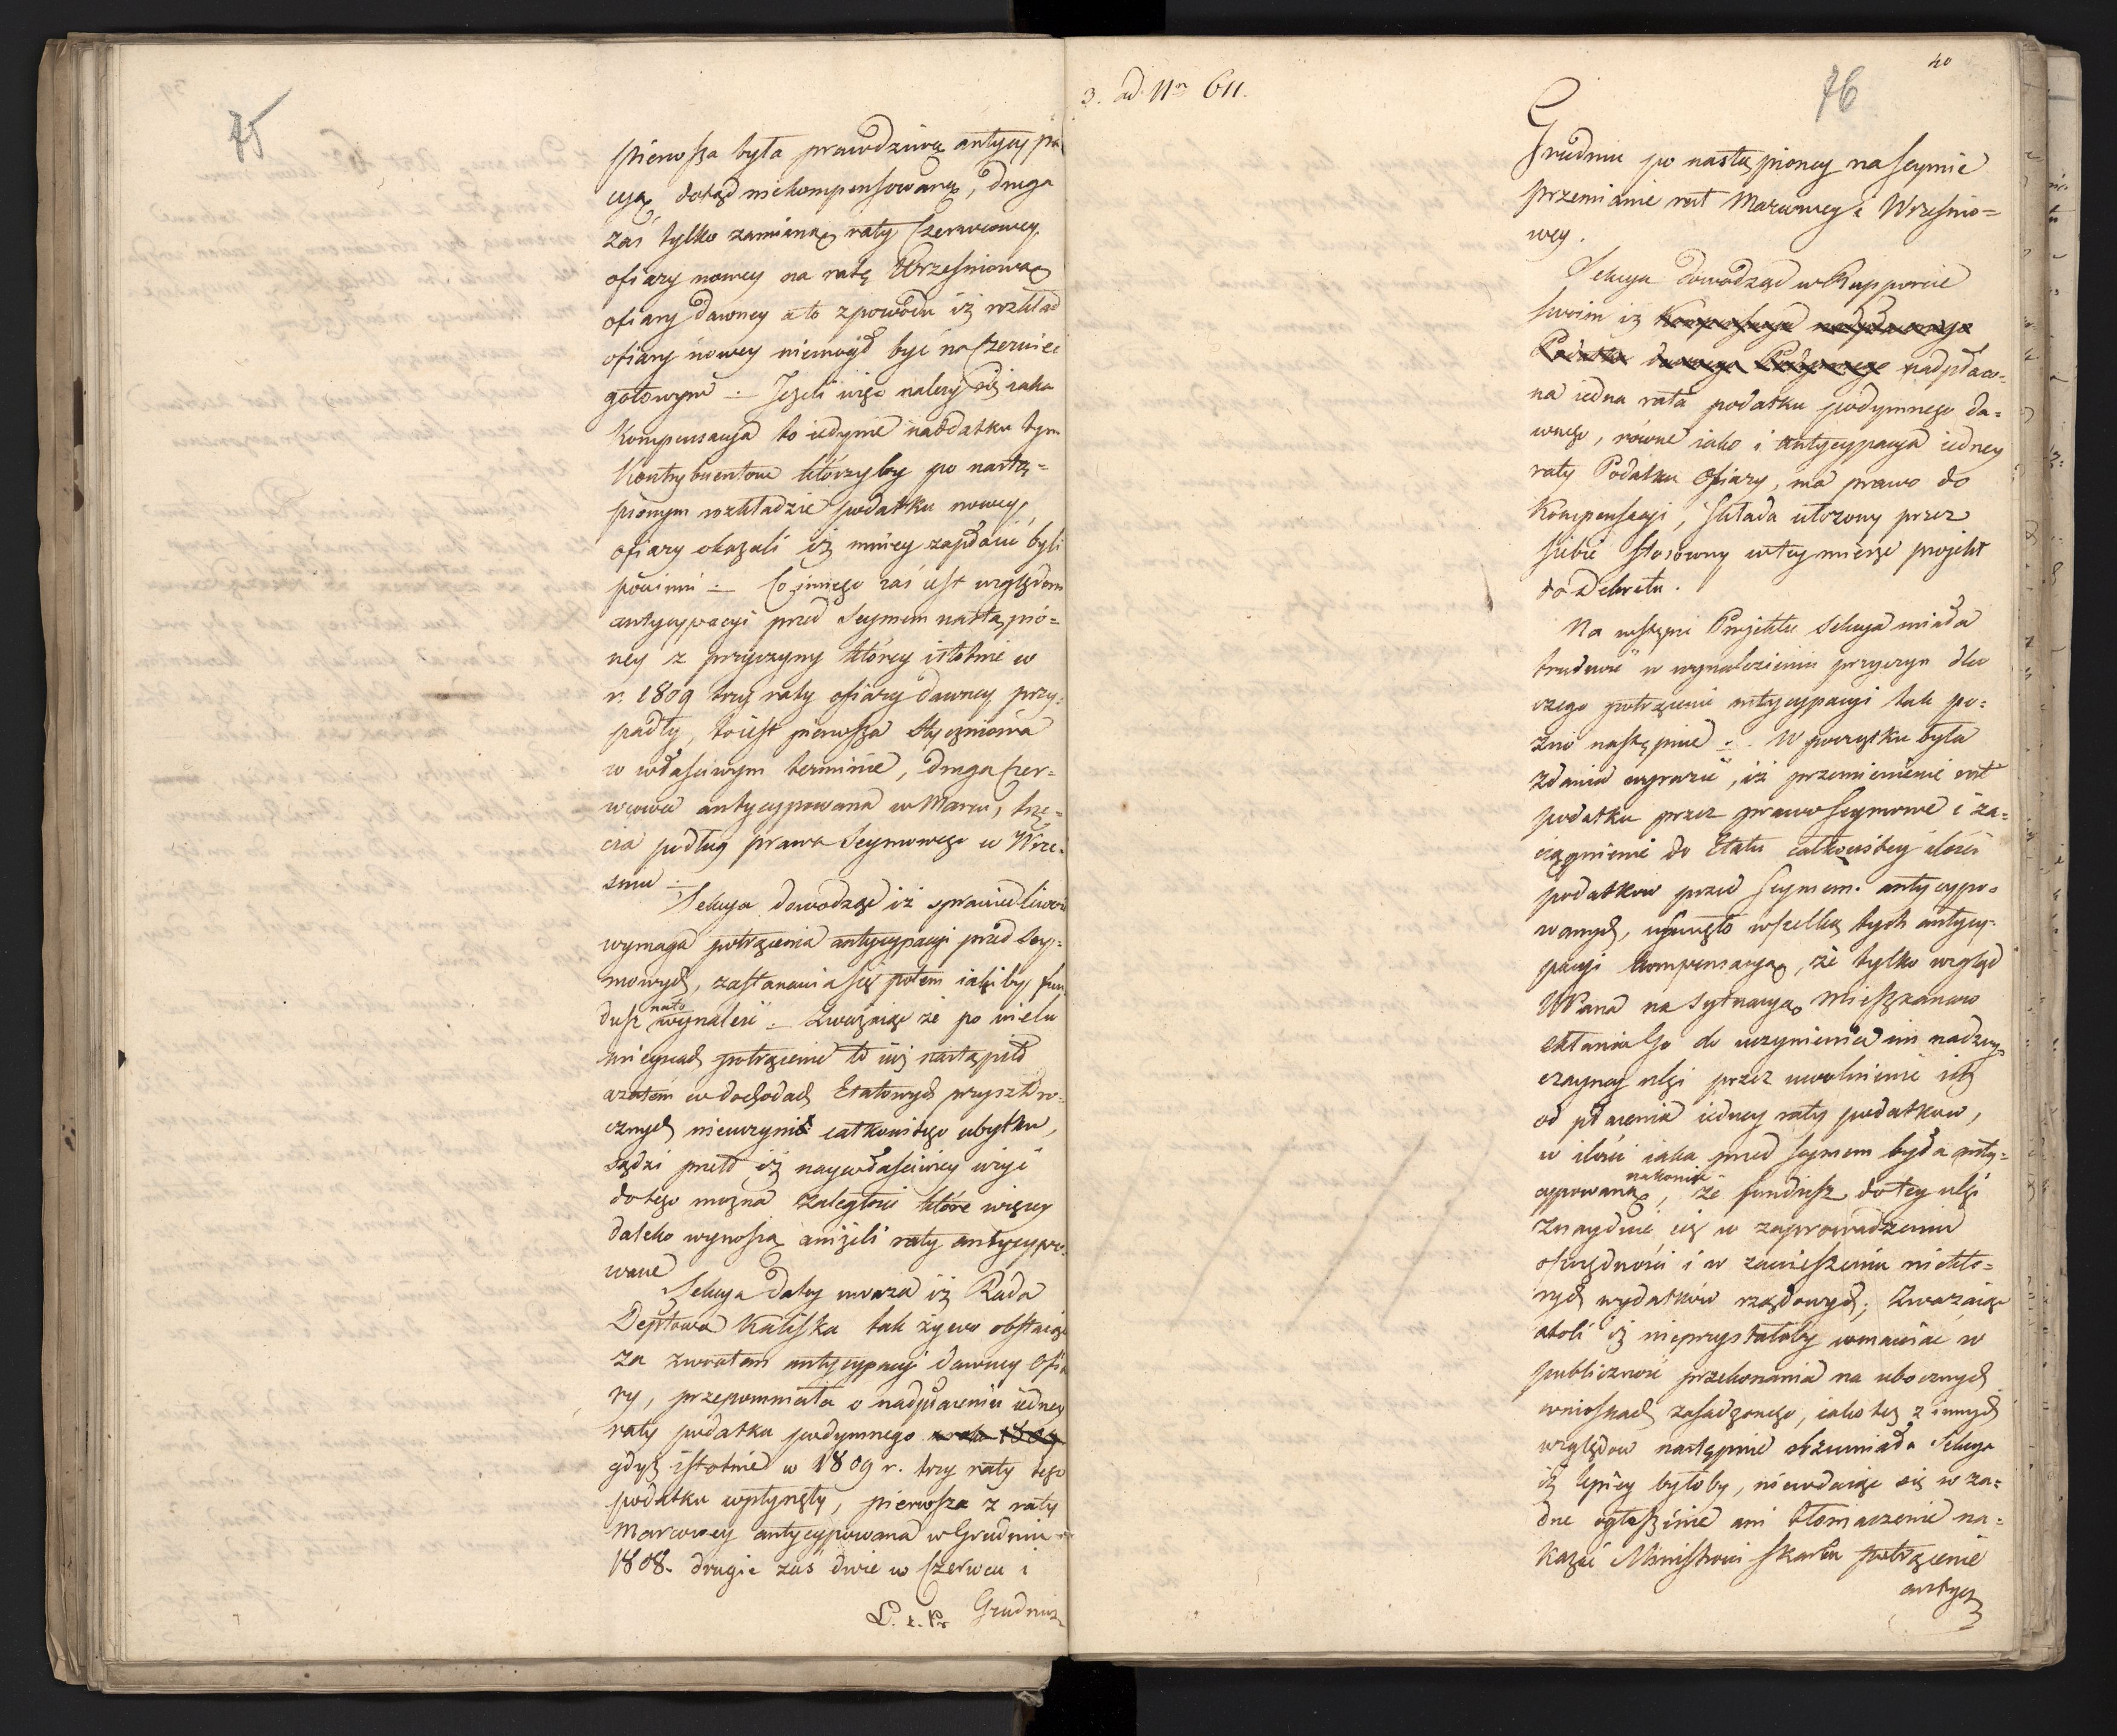 75
pierwsza była prawdziwą antycypa
cyą dotąd niekompensowaną, druga
zaś tylko zamianą raty Czerwcowey
ofiary nowey na ratę Wrześniową
ofiary dawney a to z powodu iż rozkład
ofiary nowey niemógł być na Czerwiec
gotowym ÷ Jeżeli więc należy się iaka
kompensacya to iedynie naddatku tym
Kontrybuentom którzyby po nastą=
pionym rozkładzie podatku nowey
ofiary okazali iż mniey zapłacić byli
powinni ÷ Co innego zaś iest względem
antycypacyi przed Seymem nastąpio=
ney z przyczyny którey istotnie w
r. 1809 trzy raty ofiary dawney przy-
padły, to iest pierwsza Styczniowa
w właściwym terminie, druga Czer=
wcowa antycypowana w Marcu, trze=
cia podług prawa Seymowego w Wrze-
śniu ÷
Sekcya dowodząc iż sprawiedliwość
wymaga potrącenia antycypacyi przed Sey=
mowych, zastanawia się potem iakiby fun
nato
dusz wynaleść ÷ Zważaiąc że po wielu
mieyscach potrącenie to iuż nastąpiło
a zatem w dochodach Etatowych przyszło ro-
cznych nieuczyni całkowitego ubytku,
sądzi przeto iż naywłaściwiey użyć
do tego można zaległości które więcey
daleko wynoszą aniżeli raty antycypo-
wane
Sekcya daley uważa iż Rada
Deptowa Kaliska tak żywo obstaiąc
za zwrotem antycypacyi dawney Ofia
ry, przepomniała o nadpłaceniu iedney
raty podatku podymnego w roku 1809
gdyż istotnie w 1809 r. trzy raty tego
podatku wpłynęły, pierwsza z raty
Marcowey antycypowana w Grudniu
1808. drugie zaś dwie w Czerwcu i
Grudniu
3. ad Nm 611.
76
40
Grudniu po nastąpioney na Seymie
przemianie rat Marcowey i Wrześnio=
wey.
Sekcya dowodząc w Rapporcie
swoim iż nadpłaco=
na iedna rata podatku podymnego da=
wnego, równie iako i antycypacya iedney
raty Podatku Ofiary, ma prawo do
Kompensacyi, składa ułożony przez
siebie stosowny w tey mierze projekt
do Dekretu.
Na wstępie Projektu Sekcya miała
trudność w wynalezieniu przyczyn dla
czego potrącenie antycypacyi tak po=
źno następuie ÷ W początku była
zdania wyrazić, iż przemienienie rat
podatku przez prawo Seymowe i za=
ciągnienie do Etatu całkowitey ilości
podatków przed Seymem antycypo=
wanych, usunęło wszelką tych antycy-
pacyi kompensacyą, że tylko wzgląd
WPana na sytuacyą Mieszkańców
skłania Go do uczynienia im nadzwy
czayney ulgi przez uwolnienie ich
od płacenia iedney raty podatków,
w ilości iaka przed Seymem była anty=
nakoniec
cypowaną, że fundusz do tey ulgi
znayduie się w zaprowadzeniu
oszczędności i w zmnieyszeniu niektó=
rych wydatków rządowych; Zważaiąc
atoli iż nieprzystałoby wmawiać w
publiczność przekonania na ubocznych
wnioskach zasadzonego, iako też z innych
względów następnie rozumiała Sekcya
iż lepiey byłoby, niewdaiąc się w ża=
dne ogłaszanie ani tłomaczenie na=
kazać Ministrowi Skarbu potrącenie
antycy